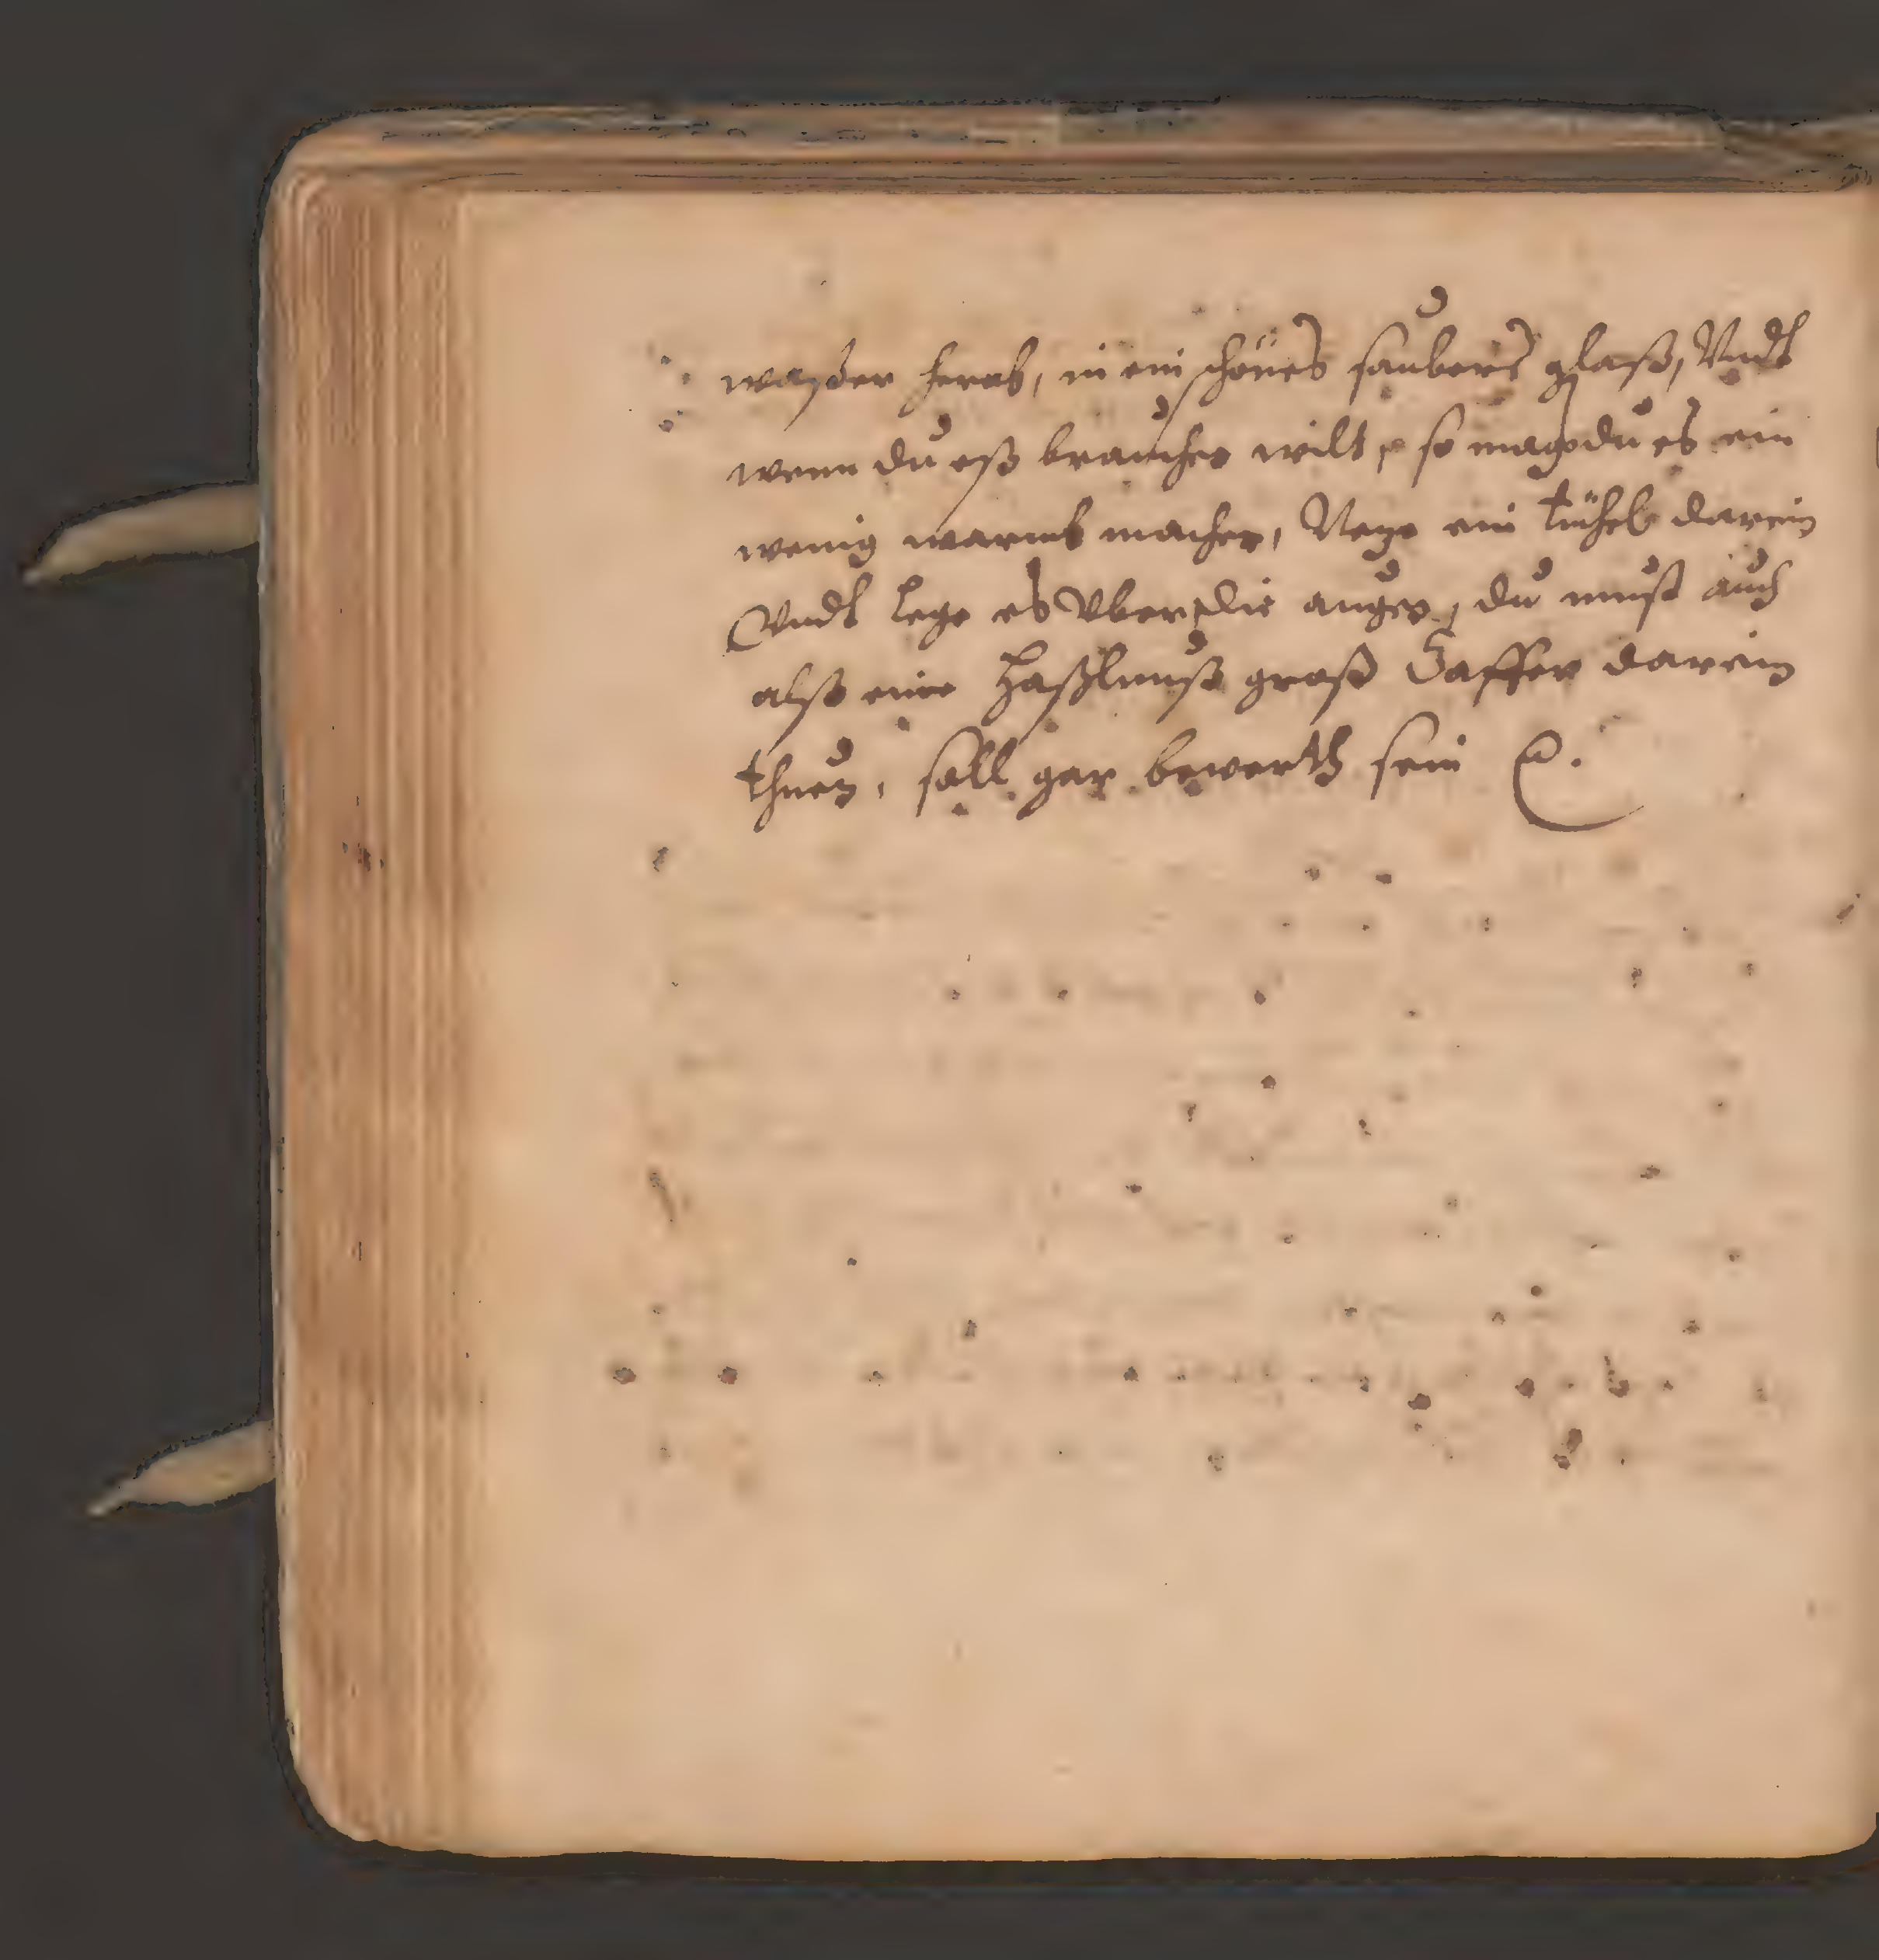 waßer herab, in ein schönes saubers glaß, Vndt
wenn du eß brauchen wilt, so magdu es ein
wenig warmb machen, Neze ein tüchel darein
Vndt lege es Vber die augen, du must auch
alß eine Haßlnuß groß Saffer darein
thuen, soll gar bewerth sein